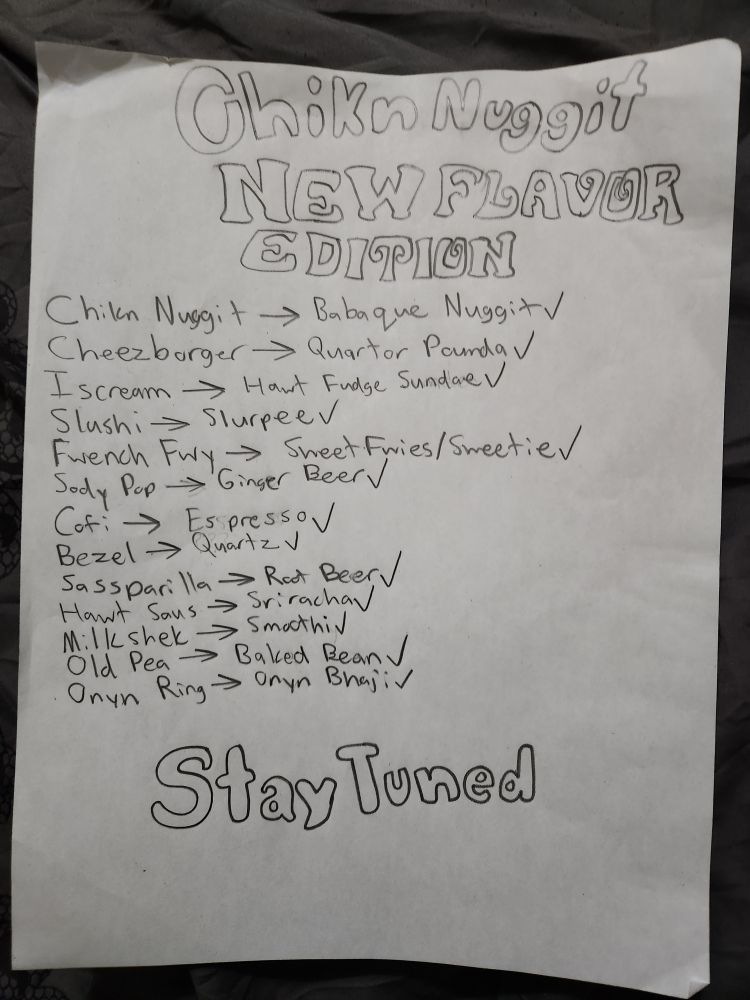 Chikn Nuggit
NEW FLAVOR
EDITION
Chikn Nuggit → Babaque Nuggit ✓
Cheezborger → Quartor Pounda ✓
Iscream → Hawt Fudge Sundae ✓
Slushi → Slurpee ✓
Fwench Fwy → Sweet Fwies/Sweetie ✓
Sody Pop → Ginger Beer ✓
Cofi → Espresso ✓
Bezel → Quartz ✓
Sassparilla → Root Beer ✓
Hawt Saus → Sriracha ✓
Milkshek → Smoothi ✓
Old Pea → Baked Bean ✓
Onyn Ring → Onyn Bhaji ✓
Stay Tuned